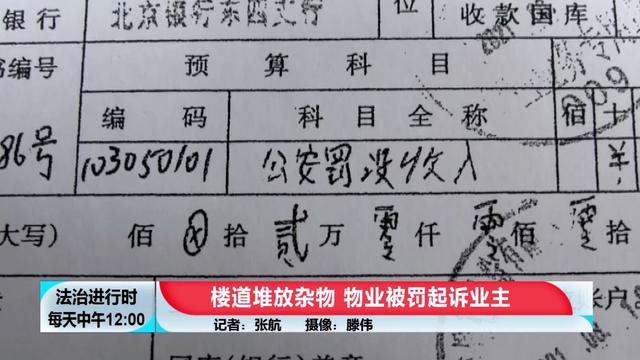 银行 北京银行东四支行 位 收款国库
书编号 预算科目
编码 科目全称 佰 十
86号 103050101 公安罚没收入 ¥
大写） 佰 ⊗ 拾 贰 万 零 仟 零 佰 零 拾
法治进行时
每天中午12:00
楼道堆放杂物 物业被罚起诉业主
记者：张航 摄像：滕伟
账户